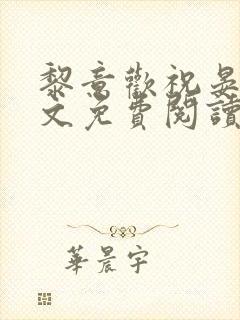 黎意歡祝晏
文免費閱讀
華晨宇